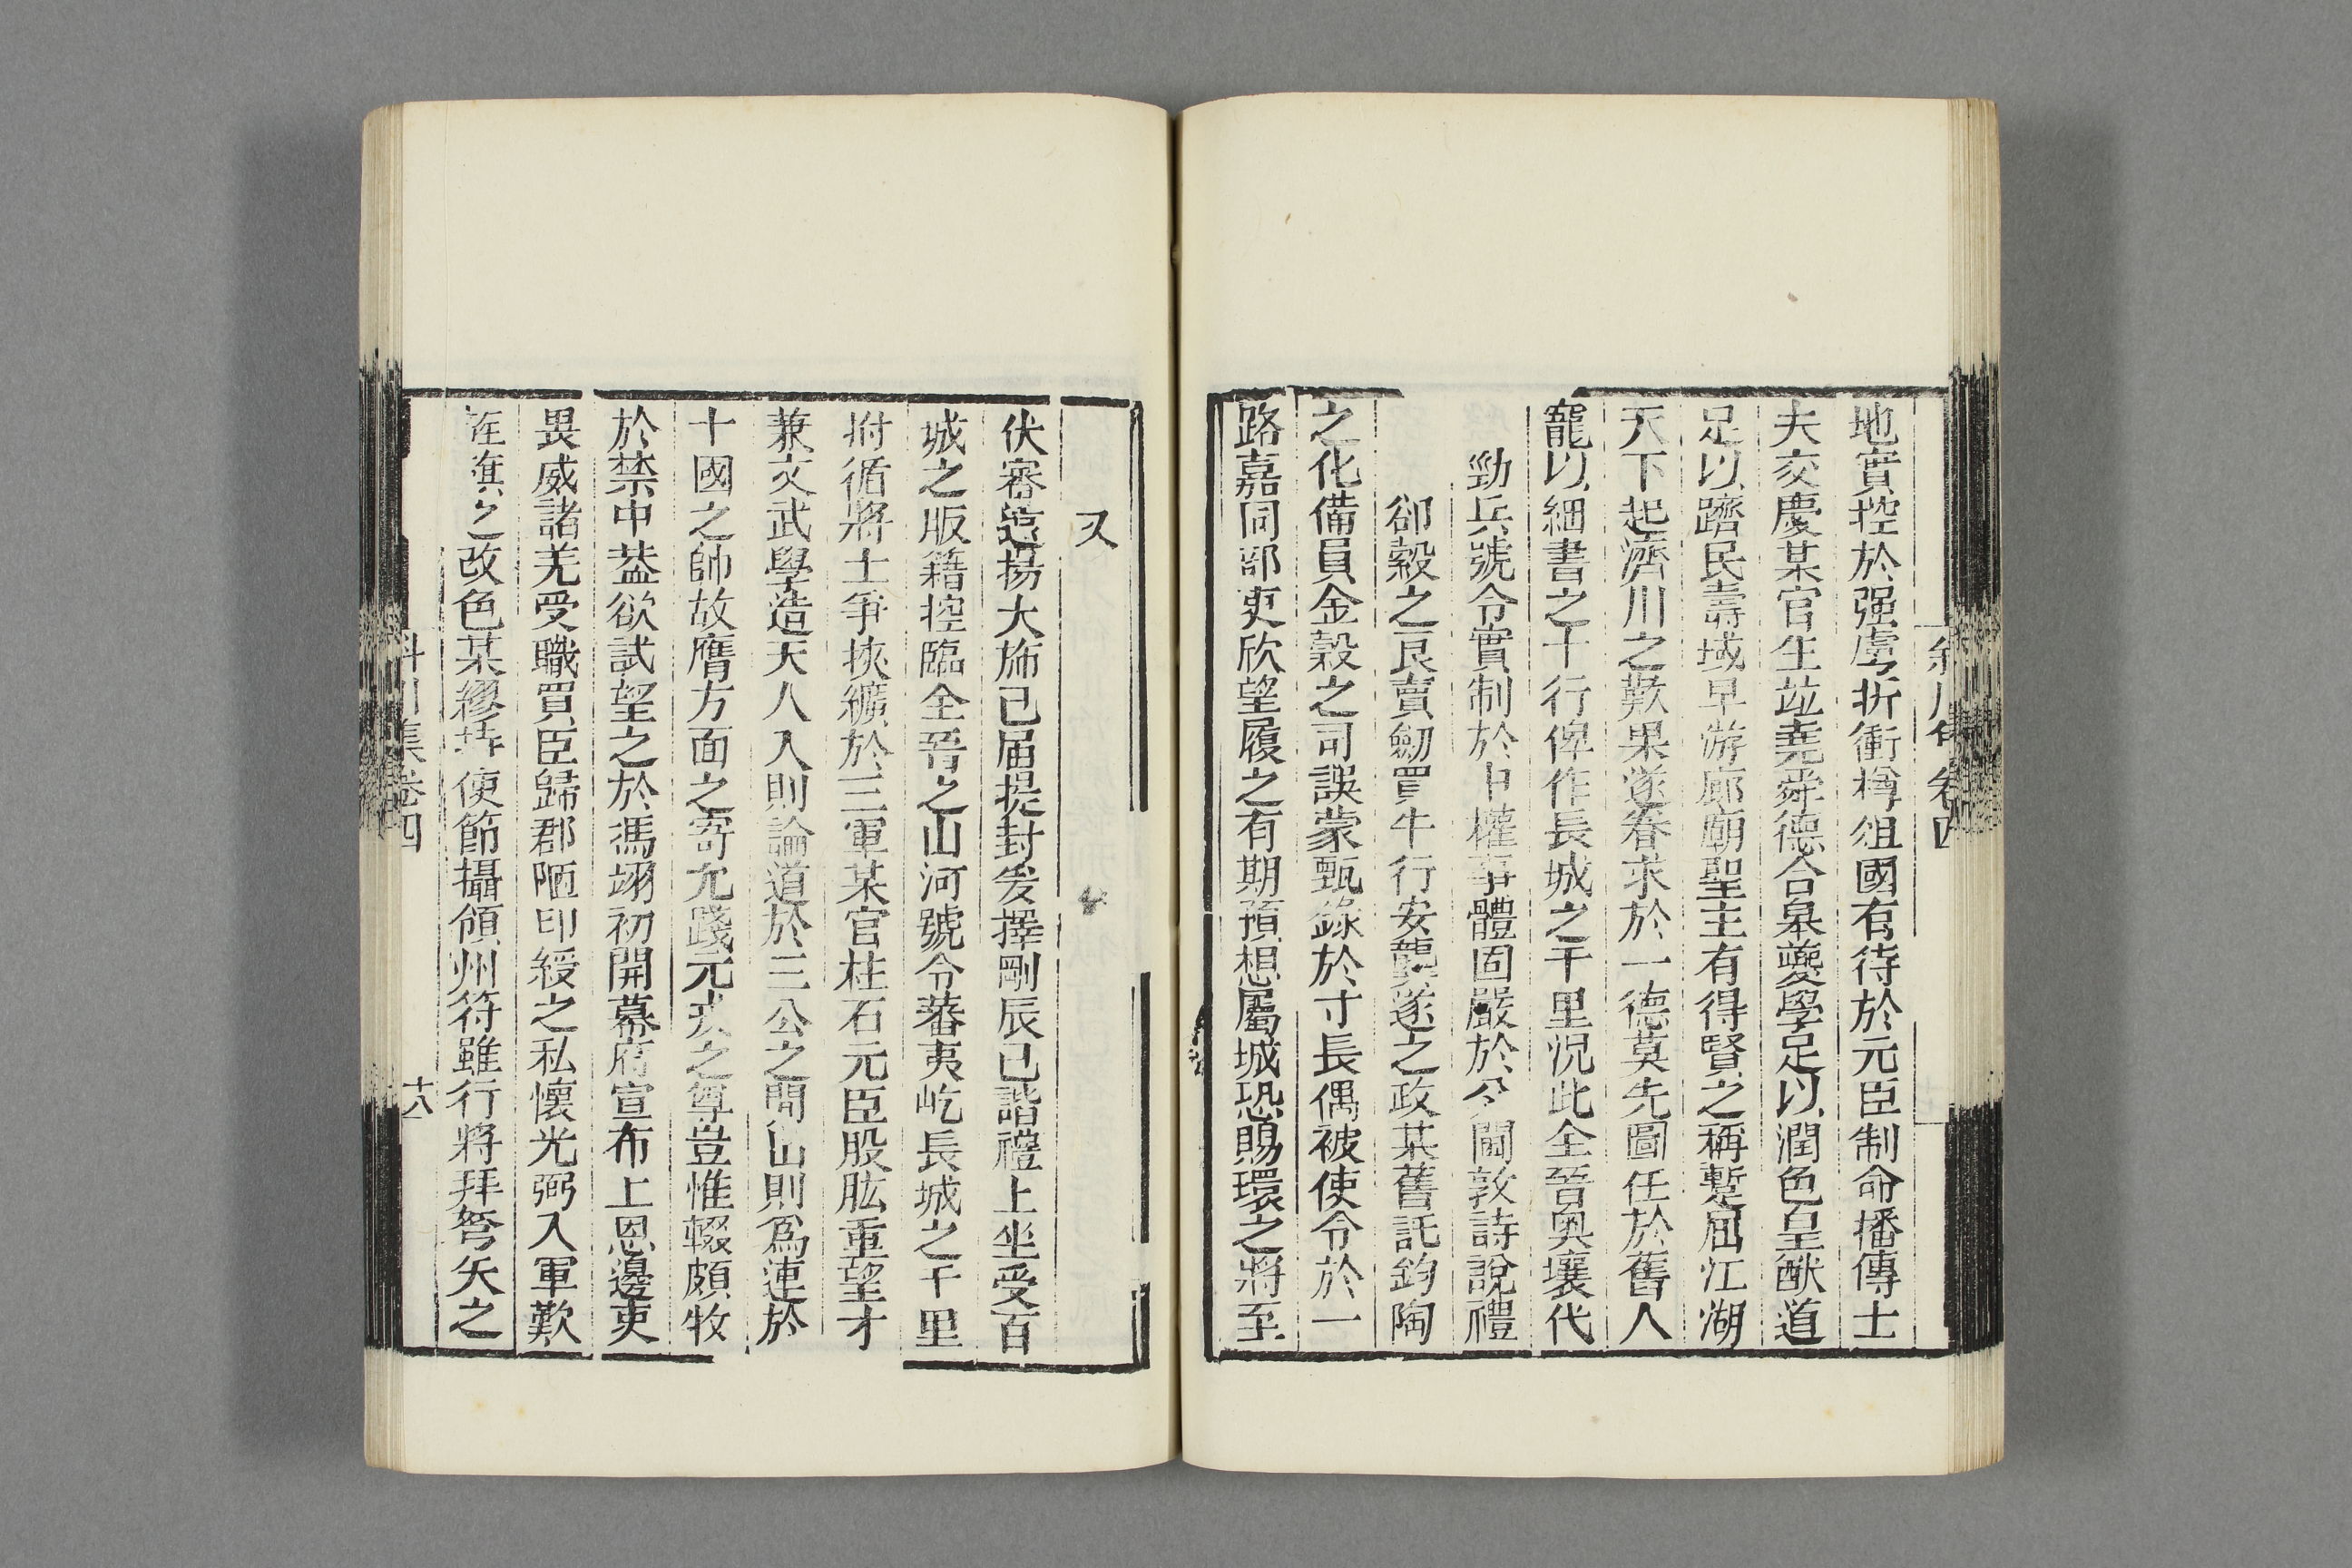 地實控於强虜折衝樽俎國有待於元臣制命播傳士
夫交慶某官生並堯舜德合皋夔學足以潤色皇猷道
足以躋民壽域早游廊廟聖主有得賢之稱蹔屈江湖
天下起濟川之歎果遂眷求於一德莫先圖任於舊人
寵以細書之十行俾作長城之千里況此全晉輿壤代
勁兵號令實制於中權事體固嚴於分閫敦詩說禮
郤縠之良賣劒買牛行安龔遂之政某舊託鈞陶
之化備員金穀之司誤蒙甄錄於寸長偶被使令於一
路嘉同部吏欣望履之有期預想屬城恐賜環之將至
又
伏審遠揚大斾已届提封爰擇剛辰已諧禮上坐受百
城之版籍控臨全晉之山河號令蕃夷屹長城之千里
拊循將士爭挾纊於三軍某官柱石元臣股肱重望才
兼文武學造天人入則論道於三公之間出則爲連於
十國之帥故膺方面之寄允踐元戎之尊豈惟輟頗牧
於禁中葢欲試望之於馮翊初開幕府宣布上恩邊吏
畏威諸羌受職買臣歸郡陋印綬之私懷光弼入軍歎
旌旗之改色某繆持使節攝領州符雖行將拜弩矢之
斜川集卷四
十八